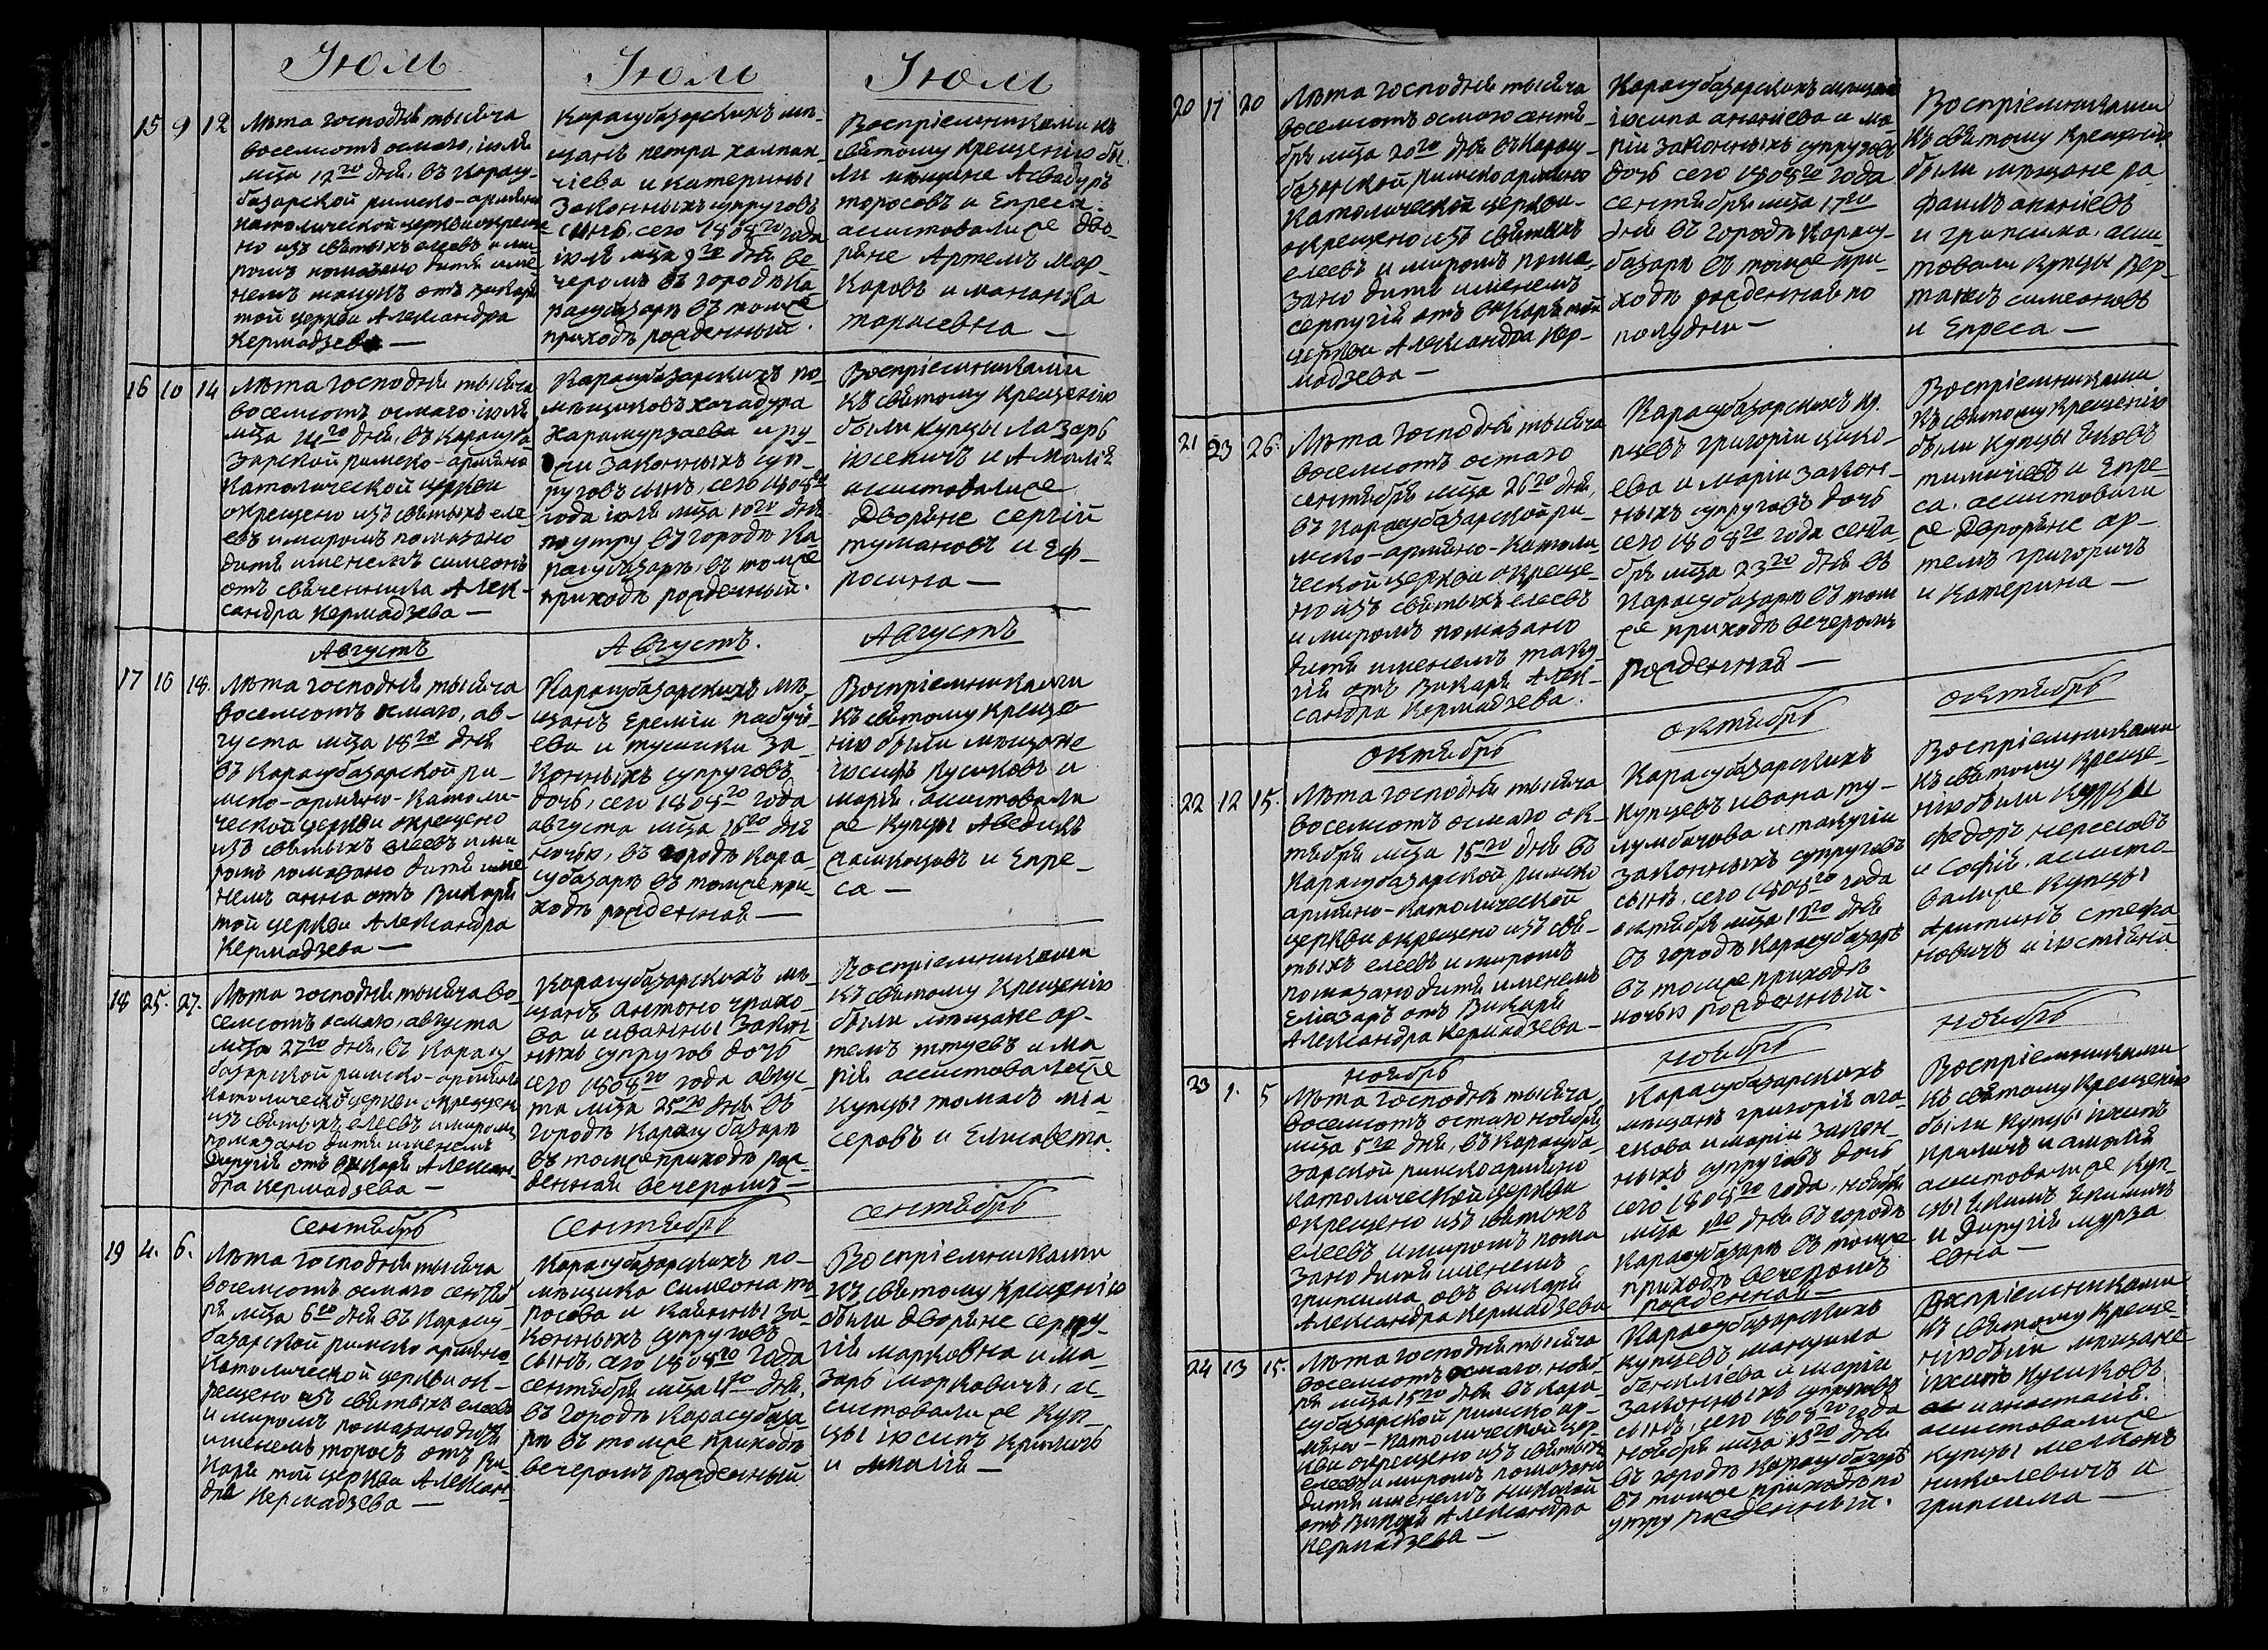 Іюль
15 9 12 Лѣта господня тысяча
восемсотъ осмаго, іюля
мца 12го дня, въ Карасу-
базарской римско-армяно
католической церкви окреще
но изъ святыхъ елеевъ и ми
ромъ помазано дитя име-
немъ отъ викарія
той церкви Александра
Кермадзева —
Іюль
Карасубазарскихъ мѣ-
щанъ петра
и катерины
законныхъ супруговъ
сынъ, сего 1808го года
іюля мца 9го дня ве-
черомъ въ городѣ Ка-
расубазарѣ въ томже
приходѣ рожденный.
Іюль
Воспріемниками къ
святому крещенію бы-
ли мѣщане Асвадуръ
торосовъ и Епреса.
ассистовали же дво-
ряне Артемъ Мар-
каровъ и мананка
тарасевна —
16 10 14 Лѣта господня тысяча
восемсотъ осмаго іюля
мца 14го дня, въ Карасуба
зарской римско-армяно
католической церкви
окрещено изъ святыхъ еле-
евъ и миромъ помазано
дитя именемъ симеонъ
отъ священника Алек-
сандра Кермадзева —
Карасубазарскихъ по-
мѣщиковъ хачадура
Харамурзаева и ру-
законныхъ суп-
руговъ сынъ, сего 1808го
года іюля мца 10го дня
по утру въ городѣ Ка-
расубазарѣ, въ томже
приходѣ рожденный.
Воспріемниками
къ святому крещенію
были купцы Лазарь
и Амалія
ассистовали же
Дворяне сергій
тумановъ и Еф-
росина —
Августъ
17 16 18. Лѣта господня тысяча
восемсотъ осмаго, ав-
густа мца 18го дня
въ Карасубазарской ри-
мско-армяно-католи-
ческой церкви окрещено
изъ святыхъ елеевъ и ми
ромъ помазано дитя име
немъ анна отъ Викарія
той церкви Александра
Кермадзева —
Августъ.
Карасубазарскихъ мѣ-
щанъ Ереміи
ева и тушики за-
конныхъ супруговъ
дочь, сего 1808го года
августа мца 16го дня
ночью, въ городѣ Кара-
субазарѣ въ томже при-
ходѣ рожденная —
Августъ
Воспріемниками
къ святому креще
нію были мѣщане
іосифъ Кусиковъ и
марія. ассистовали
же Купцы Аведикъ
и Епре-
са —
18 25. 27. Лѣта господня тысяча во-
семсотъ осмаго, августа
мца 27го дня, въ Карасу
базарской римско-армяно
католической церкви окрещен
изъ святыхъ елеевъ и миромъ
помазано дитя именемъ
Диругія отъ викарія Алексан-
дра Кермадзева —
Карасубазарскихъ мѣ-
щанъ антона
ва и иванны закон
ныхъ супругов дочь
сего 1808го года авгус-
та мца 25го дня въ
городѣ Карасубазарѣ
въ томже приходѣ рож-
денная вечеромъ —
Воспріемниками
къ святому крещенію
были мѣщане ар-
темъ и ма
рія ассистовали же
купцы томасъ
серовъ и Елисавета.
сентябрь
19 4. 6. Лѣта господня тысяча
восемсотъ осмаго сентяб-
ря мца 6го дня въ Карасу-
базарской римско армяно
католической церкви ок-
рещено изъ святыхъ елеевъ
и миромъ помазано дитя
именемъ торосъ отъ Ви-
карія той церкви Алексан-
дра Кермадзева —
сентябрь
Карасубазарскихъ по-
мѣщика симеона то
росова и за-
конныхъ супруговъ
сынъ, сего 1808го года
сентября мца 4го дня,
въ городѣ Карасубаза-
рѣ въ томже приходѣ
вечеромъ рожденный
сентябрь
Воспріемниками
къ святому крещенію
были дворяне серпу-
гія марковна и ма-
зарь марковичъ, ас-
систовали же куп-
цы іосипъ
и —
20 17 20 Лѣта господня тысяча
восемсотъ осмаго сентя-
бря мца 20го дня въ Карасу-
базарской римско армяно
католической церкви
окрещено изъ святыхъ
елеевъ и миромъ пома-
зано дитя именемъ
серпугія отъ викарія той
церкви Александра Кер-
мадзева —
Карасубазарскихъ мѣщанъ
іосипа ананіева и ма-
ріи законныхъ супруговъ
дочь сего 1808го года
сентября мца 17го
дня въ городѣ Карасу-
базарѣ въ томже при-
ходѣ рожденная по
полудни —
Воспріемниками
къ святому крещенію
были мѣщане ра-
фаилъ ананіевъ
и грипсима. асси-
товали купцы вер-
танесъ симеоновъ
и Епреса —
21 23 26. Лѣта господня тысяча
восемсотъ осмаго
сентября мца 26го дня,
въ Карасубазарской ри-
мско-армяно-католи
ческой церкви окреще-
но изъ святыхъ елеевъ
и миромъ помазано
дитя именемъ таку-
гія отъ Викарія Алек-
сандра Кермадзева.
Карасубазарскихъ ку-
пцевъ григорія
ева и маріи закон-
ныхъ супруговъ дочь
сего 1808го года сентя-
бря мца 23го дня въ
Карасубазарѣ въ том
же приходѣ вечеромъ
рожденная —
Воспріемниками
къ святому крещенію
были купцы яковъ
и Епре-
са. ассистовали
же Дворяне ар-
темъ григоричъ
и Катерина —
октябрь
22 12 15. Лѣта господня тысяча
восемсотъ осмаго ок-
тября мца 15го дня въ
Карасубазарской римско
армяно-католической
церкви окрещено изъ свя-
тыхъ елеевъ и миромъ
помазано дитя именемъ
Еліазаръ отъ Викарія
Александра Кермадзева —
октябрь
Карасубазарскихъ
купцевъ ивана ту-
лумбачова и такугіи
законныхъ супруговъ
сынъ, сего 1808го года
октября мца 12го дня
въ городѣ Карасубазарѣ
въ томже приходѣ
ночью рожденный.
октябрь
Воспріемниками
къ святому креще-
нію были купцы
федоръ нерсесовъ
и софія. ассисто-
вали же купцы
Арутинъ стефа
новичъ и іюстіяна
ноябрь
23 1. 5 Лѣта господня тысяча
восемсотъ осмаго ноября
мца 5го дня, въ Карасуба-
зарской римско армяно
католической церкви
окрещено изъ святыхъ
елеевъ и миромъ пома
зано дитя именемъ
грипсима отъ викарія
Александра Кермадзева
ноябрь
Карасубазарскихъ
мѣщанъ григорія ага-
екова и маріи закон-
ныхъ супруговъ дочь
сего 1808го года, ноября
мца 1го дня въ городѣ
Карасубазарѣ въ томже
приходѣ вечеромъ
рожденная —
ноябрь
Воспріемниками
къ святому крещенію
были купцы іосипъ
и амалія
ассистовали же куп-
цы
и Диругія мурза
евна —
24 13 15. Лѣта господня тысяча
восемсотъ осмаго, нояб-
ря мца 15го дня въ Кара-
субазарской римско ар-
мяно-католической цер-
кви окрещено изъ святыхъ
елеевъ и миромъ помазано
дитя именемъ николай
отъ Викарія Александра
Кермадзева —
Карасубазарскихъ
купцевъ манушка
и маріи
законныхъ супруговъ
сынъ, сего 1808го года
ноября мца 13го дня
въ городѣ Карасубазарѣ
въ томже приходѣ по
утру рожденный.
Воспріемниками
къ святому креще-
нію были мѣщане
іосипъ Кусиковъ
и анастасія.
ассистовали же
купцы мелконъ
николевичъ и
грипсима —